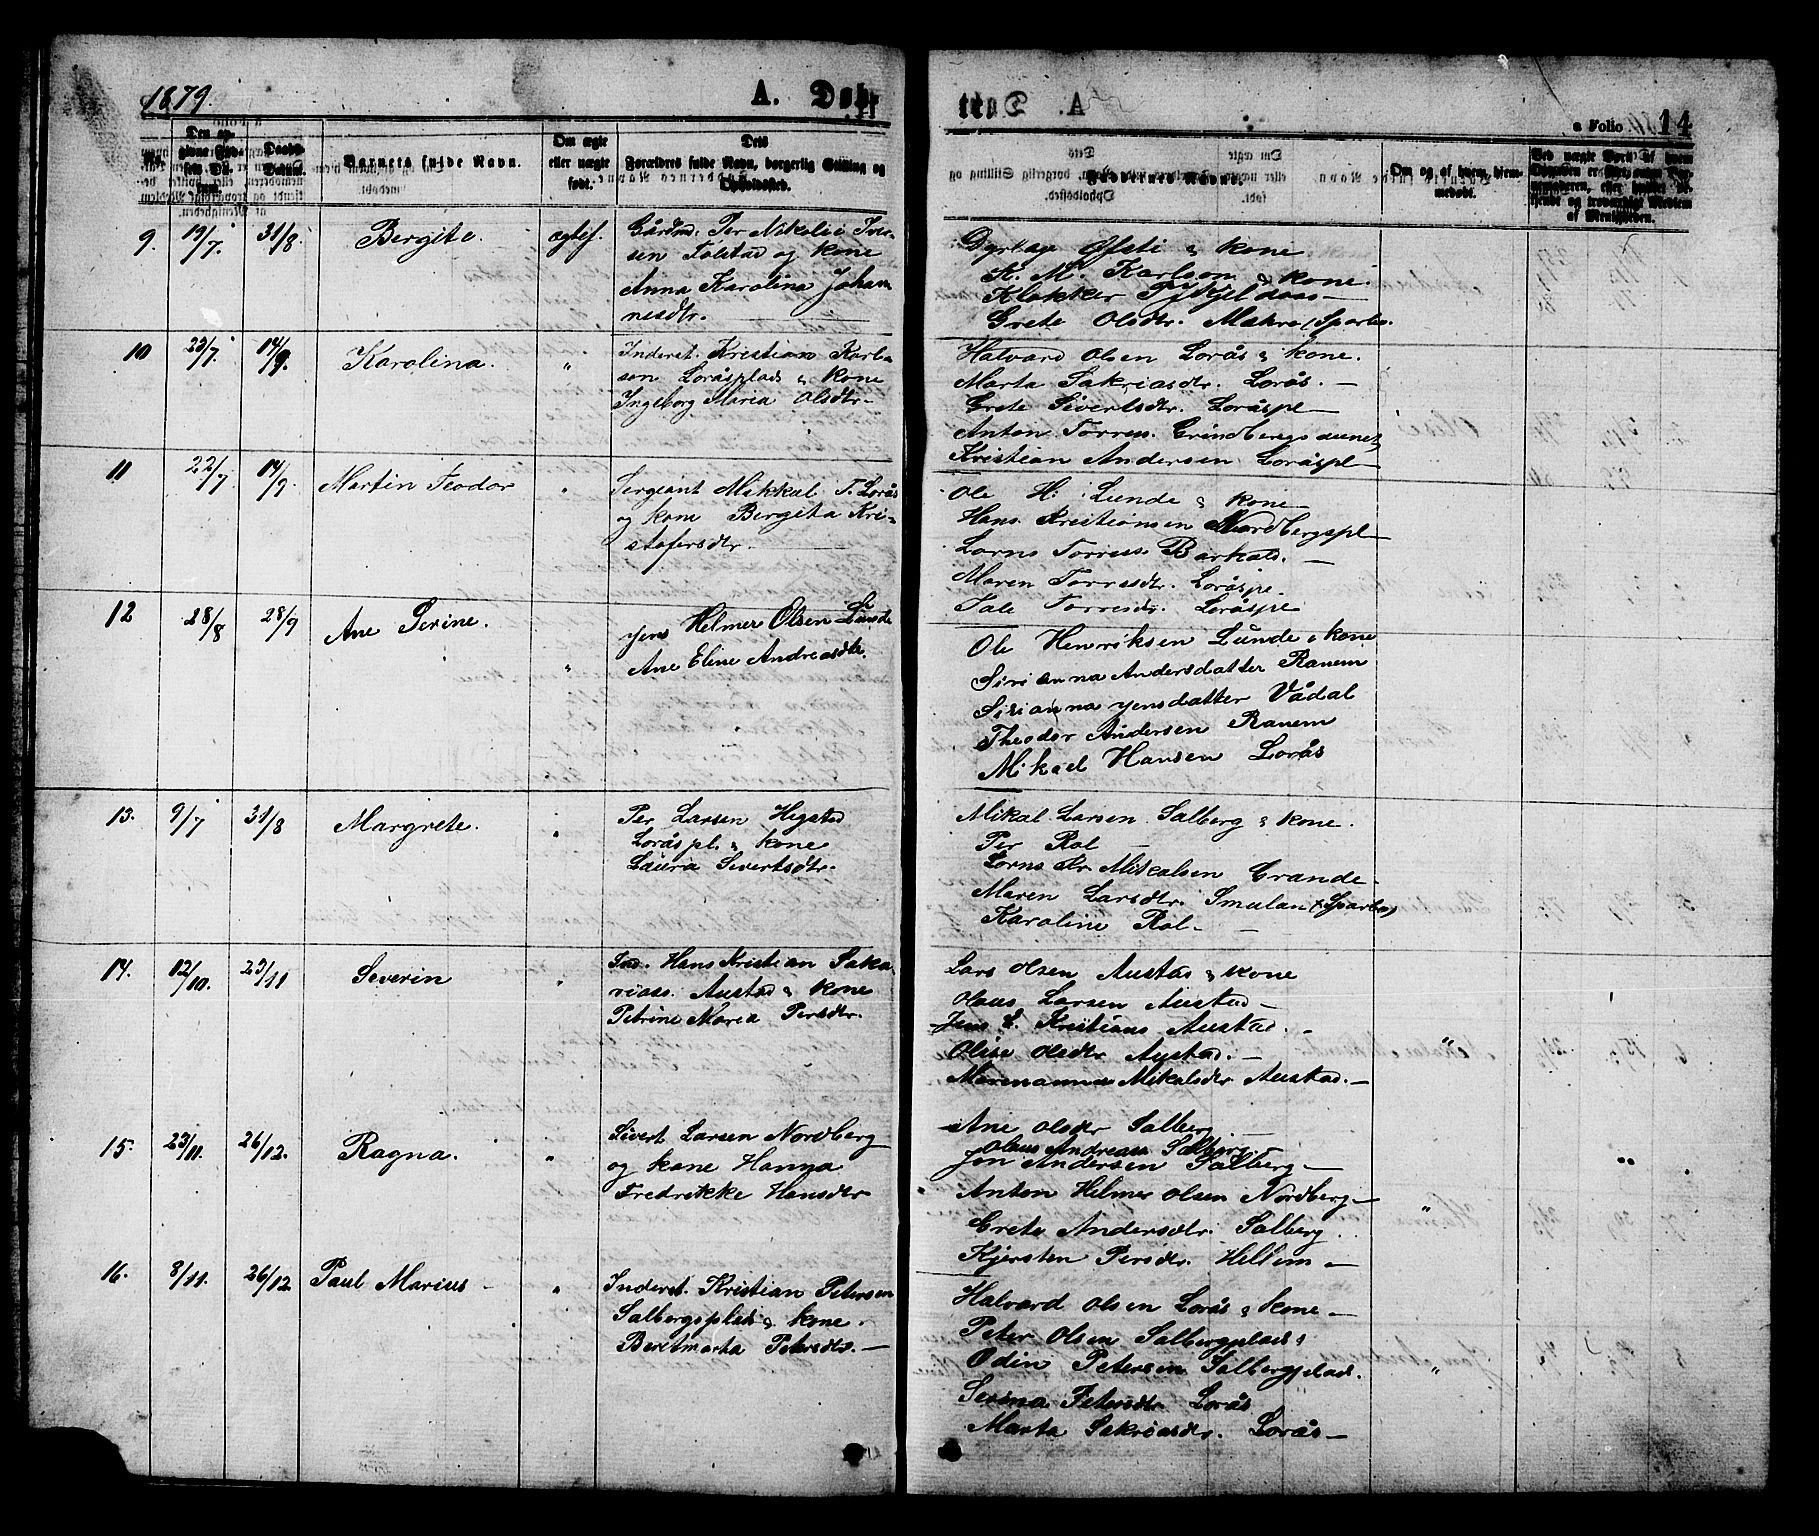 1879.
A. Døb
a Folio 14
No.
Den opgivne Fødsels Datum.
Daabs-Datum.
Barnets fulde Navn.
Om ægte eller uægte født.
Dets Forældres fulde Navn, borgerlig Stilling og Opholdssted.
Faddernes Navne.
Om og af hvem hjemmedøbt.
9. 19/7. 31/8. Bergite. ægtef. Gårdmd. Per Nikolai Iver-
sen Folstad og kone
Anna Karolina Johan
nesdtr.
Øfsti & kone
K. M. Karlson & kone.
Klokker Kjeldaas
Grete Olsdtr. Mære (Sparbu
10 23/7. 14/9. Karolina. " Inderst. Kristian Karl-
sen Loråsplads & kone
Ingeborg Maria Olsdtr.
Halvard Olsen Lorås & kone.
Marta Sakriasdtr. Lorås.
Grete Sivertsdtr. Loråspl
Anton Torres. Grindbergsaunet
Kristian Andersen Loråspl
11 22/7 14/9. Martin Teodor " Sergeant Mikkal T. Lorås
og kone Bergita Kri-
stofersdtr.
Ole H. Lunde & kone
Hans Kristiansen Nordbergspl
Lorns Torress
Maren Torresdtr. Loråspl.
Torresdtr. Loråspl
12 28/8 28/9 Ane Serine. " Jens Helmer Olsen Lunde
Ane Eline Andreasdtr.
Ole Henriksen Lunde & kone
Sirianna Andersdatter Ranem
Sirianna Jensdatter Vådal
Theodor Andersen Ranem
Mikael Hansen Lorås
13. 9/7 31/8 Margrete. " Per Larsen Hegstad
Loråspl. & kone
Laura Sivertsdtr.
Mikal Larsen Salberg & kone.
Per Rol
Lorns Mikalsen Grande
Maren Larsdtr. Smulan (Sparbu)
Karoline Rol
14. 12/10. 23/11 Severin " Ind. Hans Kristian Saka-
riass. Austad & kone
Petrine Maria Persdtr.
Lars Olsen Austad & kone
Olaus Larsen Austad
Jens E. Kristians Austad.
Olise Olsdtr Austad.
Marenanna Mikalsdtr Austad.
"
15. 23/11. 26/12. Ragna. " Sivert Larsen Nordberg
og kone Hanna
Fredrikke Hansdtr
Ane Olsdtr Salberg
Olaus Andreass Salberg
Jon Andersen Salberg
Anton Helmer Olsen Nordberg
Grete Andersdtr. Salberg
Kjersten Persdtr. Hellem
"
16. 8/11. 26/12. Paul Marius " Inderst. Kristian Petersen
Salbergsplads & kone
Beretmarta Petersdtr.
Halvard Olsen Lorås & kone
Peter Olsen Salbergplads
Odin Petersen Salbergplads.
Petersdtr Lorås
Marta Sakriasdr. Lorås
"